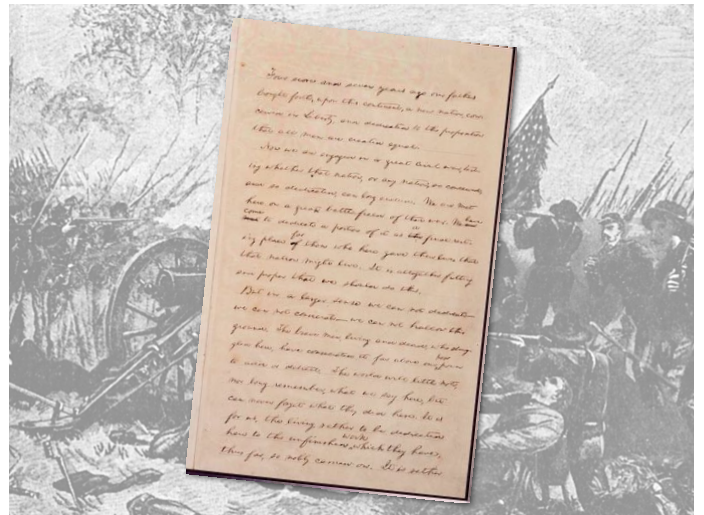 Four score and seven years ago our fathers
brought forth, upon this continent, a new nation, con-
ceived in Liberty, and dedicated to the proposition
that all men are created equal.
Now we are engaged in a great civil war, test-
ing whether that nation, or any nation, so conceived,
and so dedicated, can long endure. We are met
here on a great battle-field of that war. We have
come to dedicate a portion of it as a final rest-
ing place for those who here gave their lives that
that nation might live. It is altogether fitting
and proper that we should do this.
But in a larger sense we can not dedicate—
we can not consecrate— we can not hallow this
ground. The brave men, living and dead, who strug-
gled here, have consecrated it far above our poor power
to add or detract. The world will little note,
nor long remember, what we say here, but
can never forget what they did here. It is
for us, the living, rather to be dedicated
here to the unfinished work which they have,
thus far, so nobly carried on. It is rather